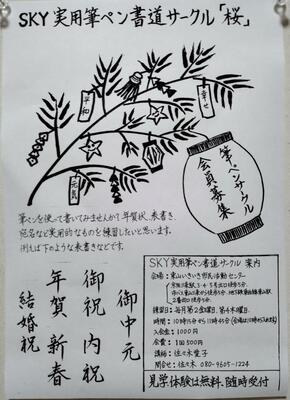 SKY 実用筆ペン書道サークル「桜」
平和
幸せ
元気
筆ペンサークル
会員募集
筆ペンを使って書いてみませんか？年賀状、表書き、
宛名など実用的なものを練習したいと思います。
例えば下のような表書きなどです。
御中元
御祝 内祝
年賀 新春
結婚祝
SKY実用筆ペン書道サークル 案内
会場：東山いきいき市民活動センター
練習日：毎月第2金曜日、第4木曜日
時間：10時15分から11時45分
入会金：1000円
会費：1回500円
講師：佐々木
問合せ：佐々木 080-9605-1224
見学体験は無料、随時受付